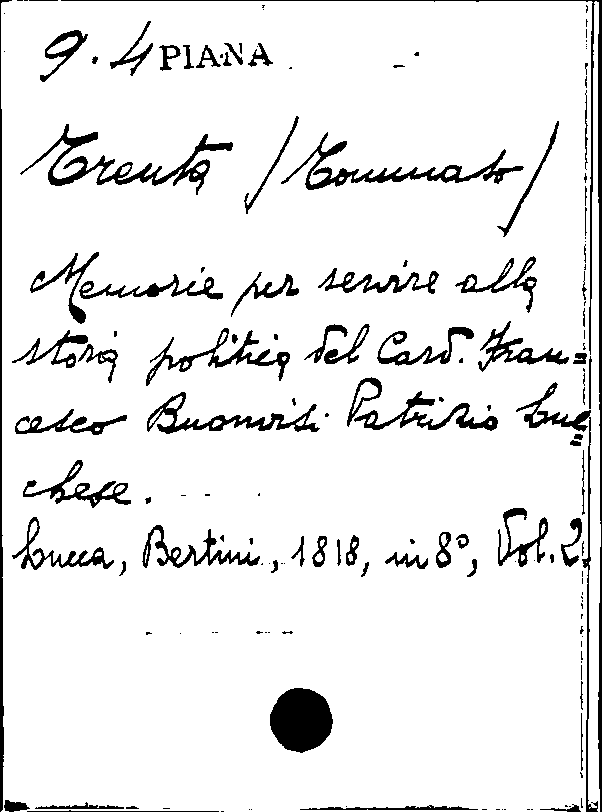 9.4 PIANA
Trenta /Tommaso/
Memorie per servire alla
storia politica del Card. Fran=
cesco Buonvisi Patrizio Luc=
chese.
Lucca, Bertini, 1818, in 8°, Vol. 2.